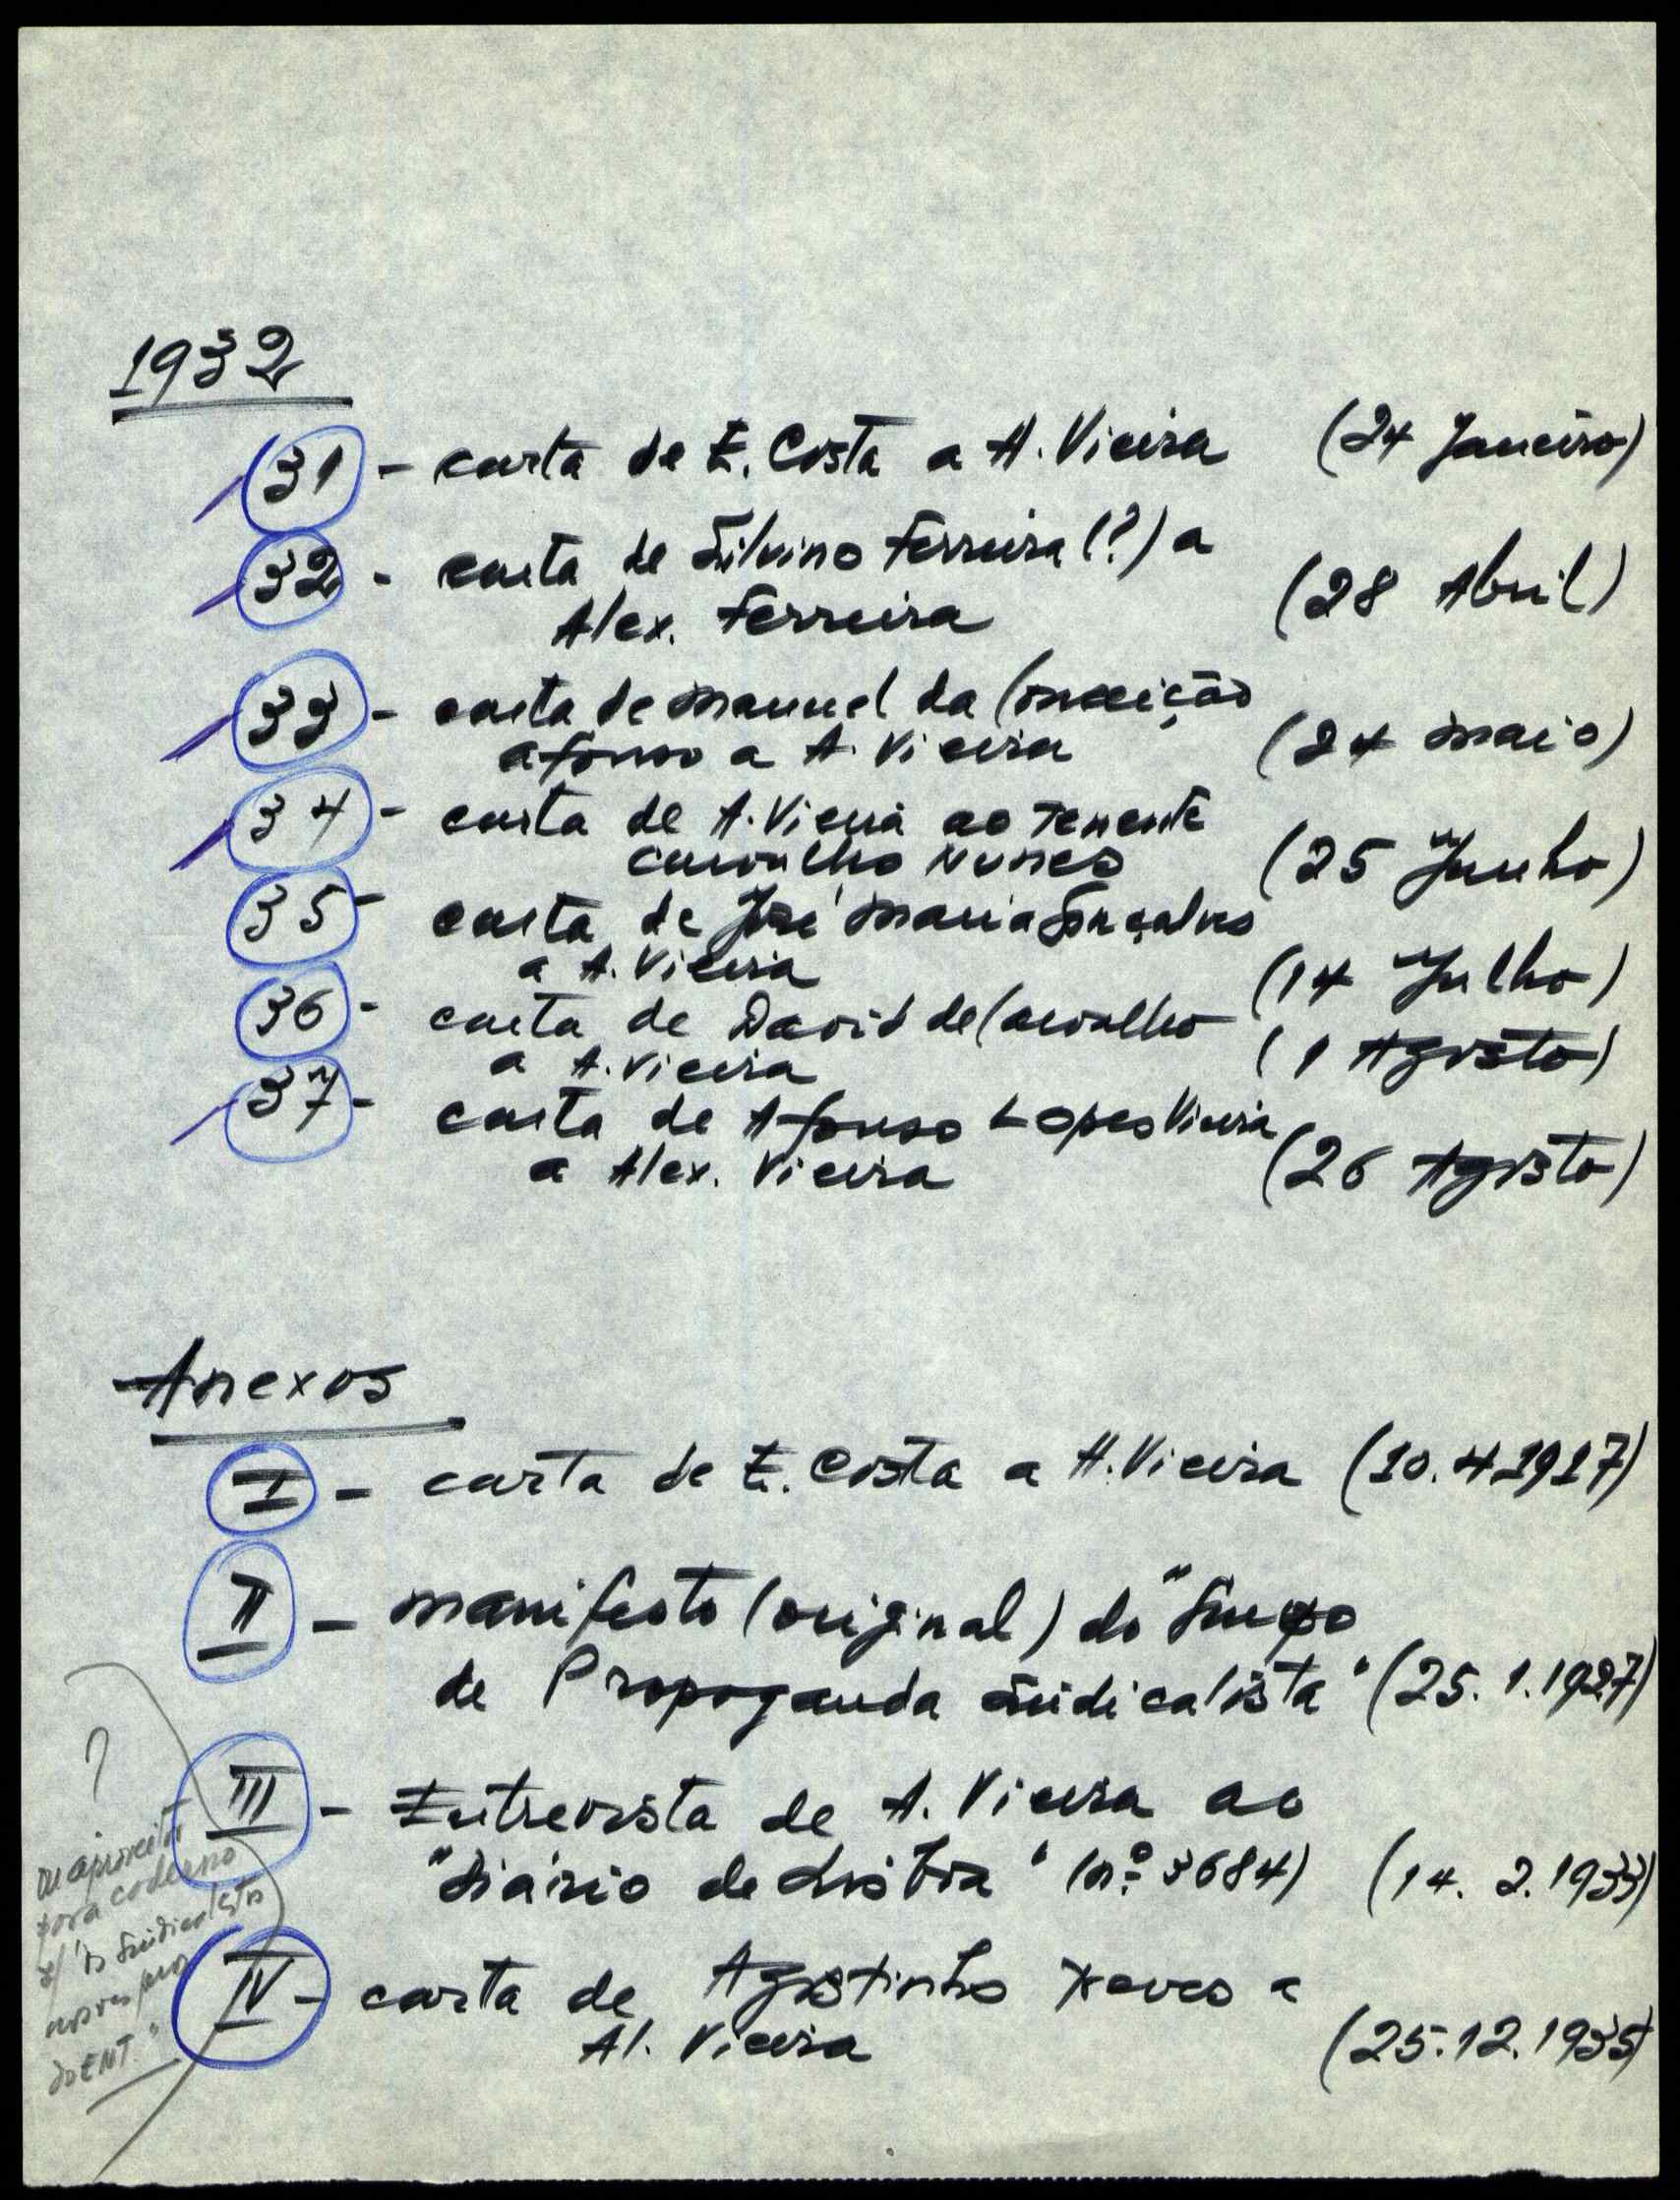 1932
31 - carta de E. Costa a A. Vieira (24 Janeiro)
32 - carta de Silvino Ferreira (?) a
Alex. Ferreira (28 Abril)
33 - carta de Manuel da Conceição
Afonso a A. Vieira (24 maio)
34 - carta de A. Vieira ao Tenente
Carvalho Nunes (25 Junho)
35 - carta de José Maria Gonçalves
a A. Vieira (14 Julho)
36 - carta de David de Carvalho
a A. Vieira (1 Agosto)
37 - carta de Afonso Lopes Vieira
a Alex. Vieira (26 Agosto)
Anexos
I - carta de E. Costa a A. Vieira (10.4.1917)
II - manifesto (original) do "Grupo
de Propaganda Sindicalista" (25.1.1927)
III - Entrevista de A. Vieira ao
"Diário de Lisboa" (nº 3684) (14.2.1933)
IV - carta de Agostinho a
Al. Vieira (25.12.1935)
?
ou aproveitar
para caderno
s/ "Os Sindicalistas